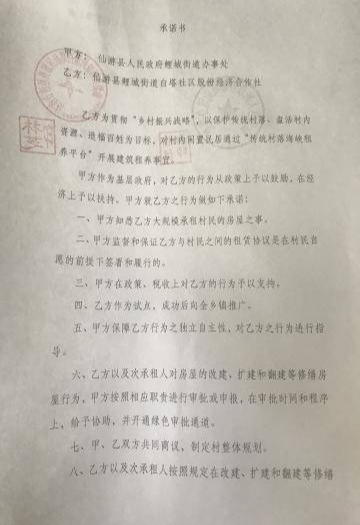 承诺书
甲方：仙游县人民政府鲤城街道办事处
乙方：仙游县鲤城街道白塔社区股份经济合作社
乙方为贯彻“乡村振兴战略”，以保护传统村落、盘活村内
资源、造福百姓为目标，对村内闲置民居通过“传统村落海峡租
养平台”开展建筑租养事宜。
甲方作为基层政府，对乙方的行为从政策上予以鼓励，在经
济上予以扶持。甲方就乙方之行为做如下承诺：
一、甲方知悉乙方大规模承租村民的房屋之事。
二、甲方监督和保证乙方与村民之间的租赁协议是在村民自
愿的前提下签署和履行的。
三、甲方在政策、税收上对乙方的行为予以支持。
四、乙方作为试点，成功后向全乡镇推广。
五、甲方保障乙方行为之独立自主性，对乙方之行为进行指
导。
六、乙方以及次承租人对房屋的改建、扩建和翻建等修缮房
屋行为，甲方按照相应职责进行审批或申报，在审批时间和程序
上，给予协助，并开通绿色审批通道。
七、甲、乙双方共同商议，制定村整体规划。
八、乙方以及次承租人按照规定在改建、扩建和翻建等修缮